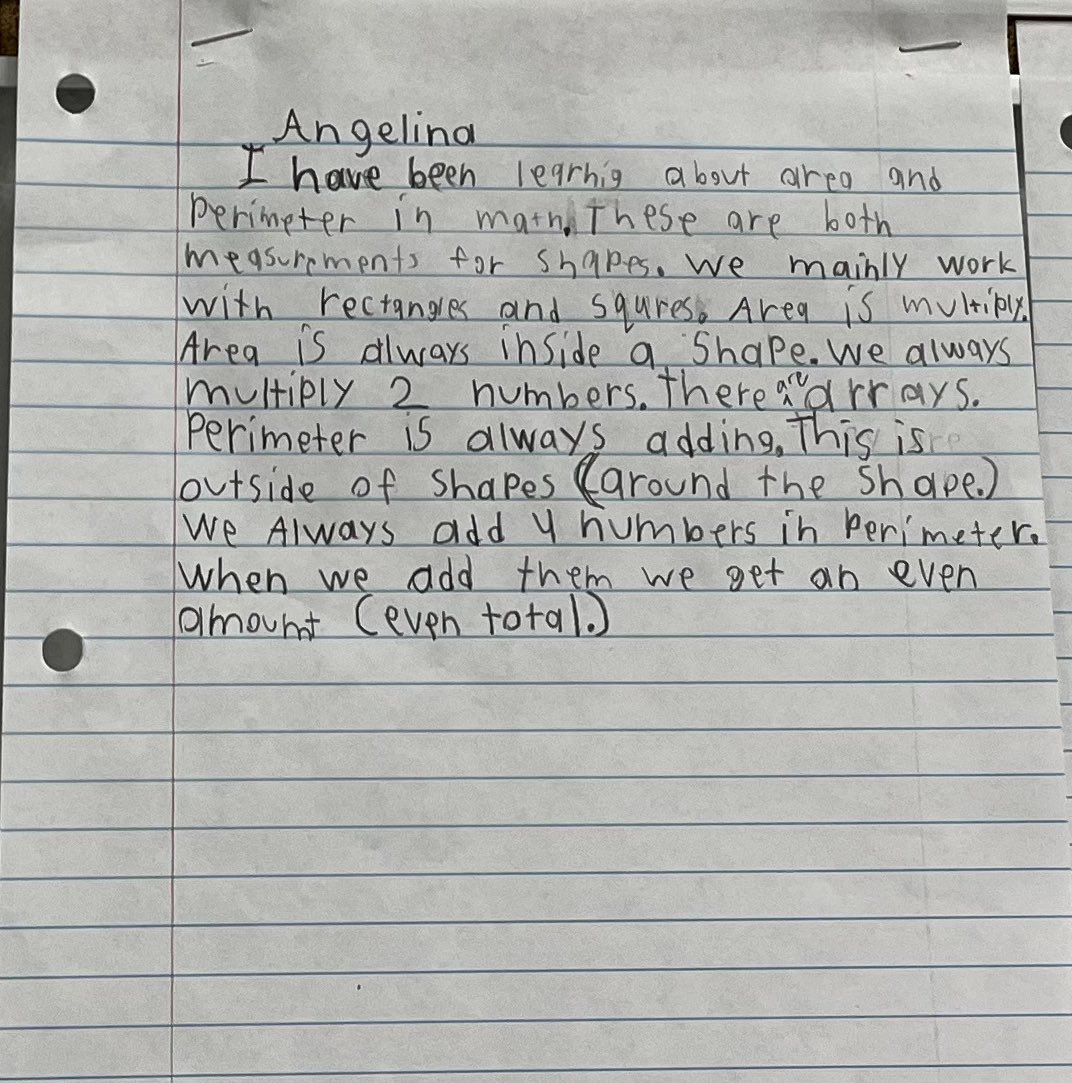 Angelina
I have been learnig about area and
perimeter in math. These are both
measurements for shapes. We mainly work
with rectangles and squres. Area is multiply.
Area is always inside a shape. We always
multiply 2 numbers. There are arrays.
Perimeter is always adding. This is
outside of shapes (around the shape.)
We Always add 4 numbers in perimeter.
When we add them we get an even
amount (even total.)